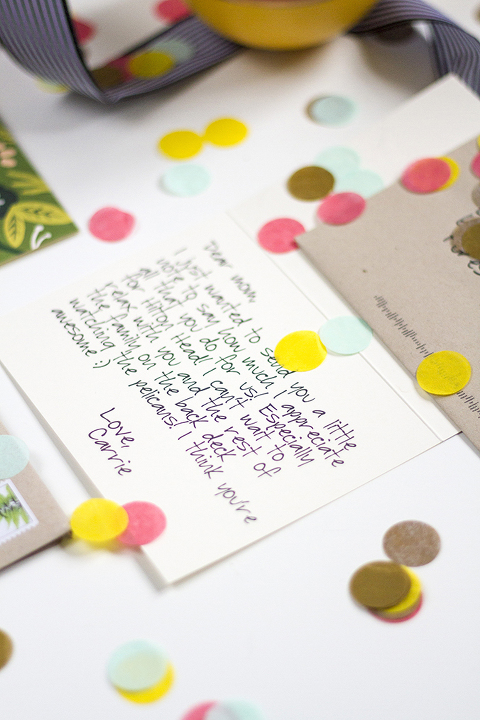 Dear mom,
I just wanted to send you a little
note to say how much I appreciate
all that you do for us! Especially
for Hilton Head! I can't wait to
relax with you and the rest of
the family on the back deck
watching the pelicans! I think you're
awesome :)
Love,
Carrie